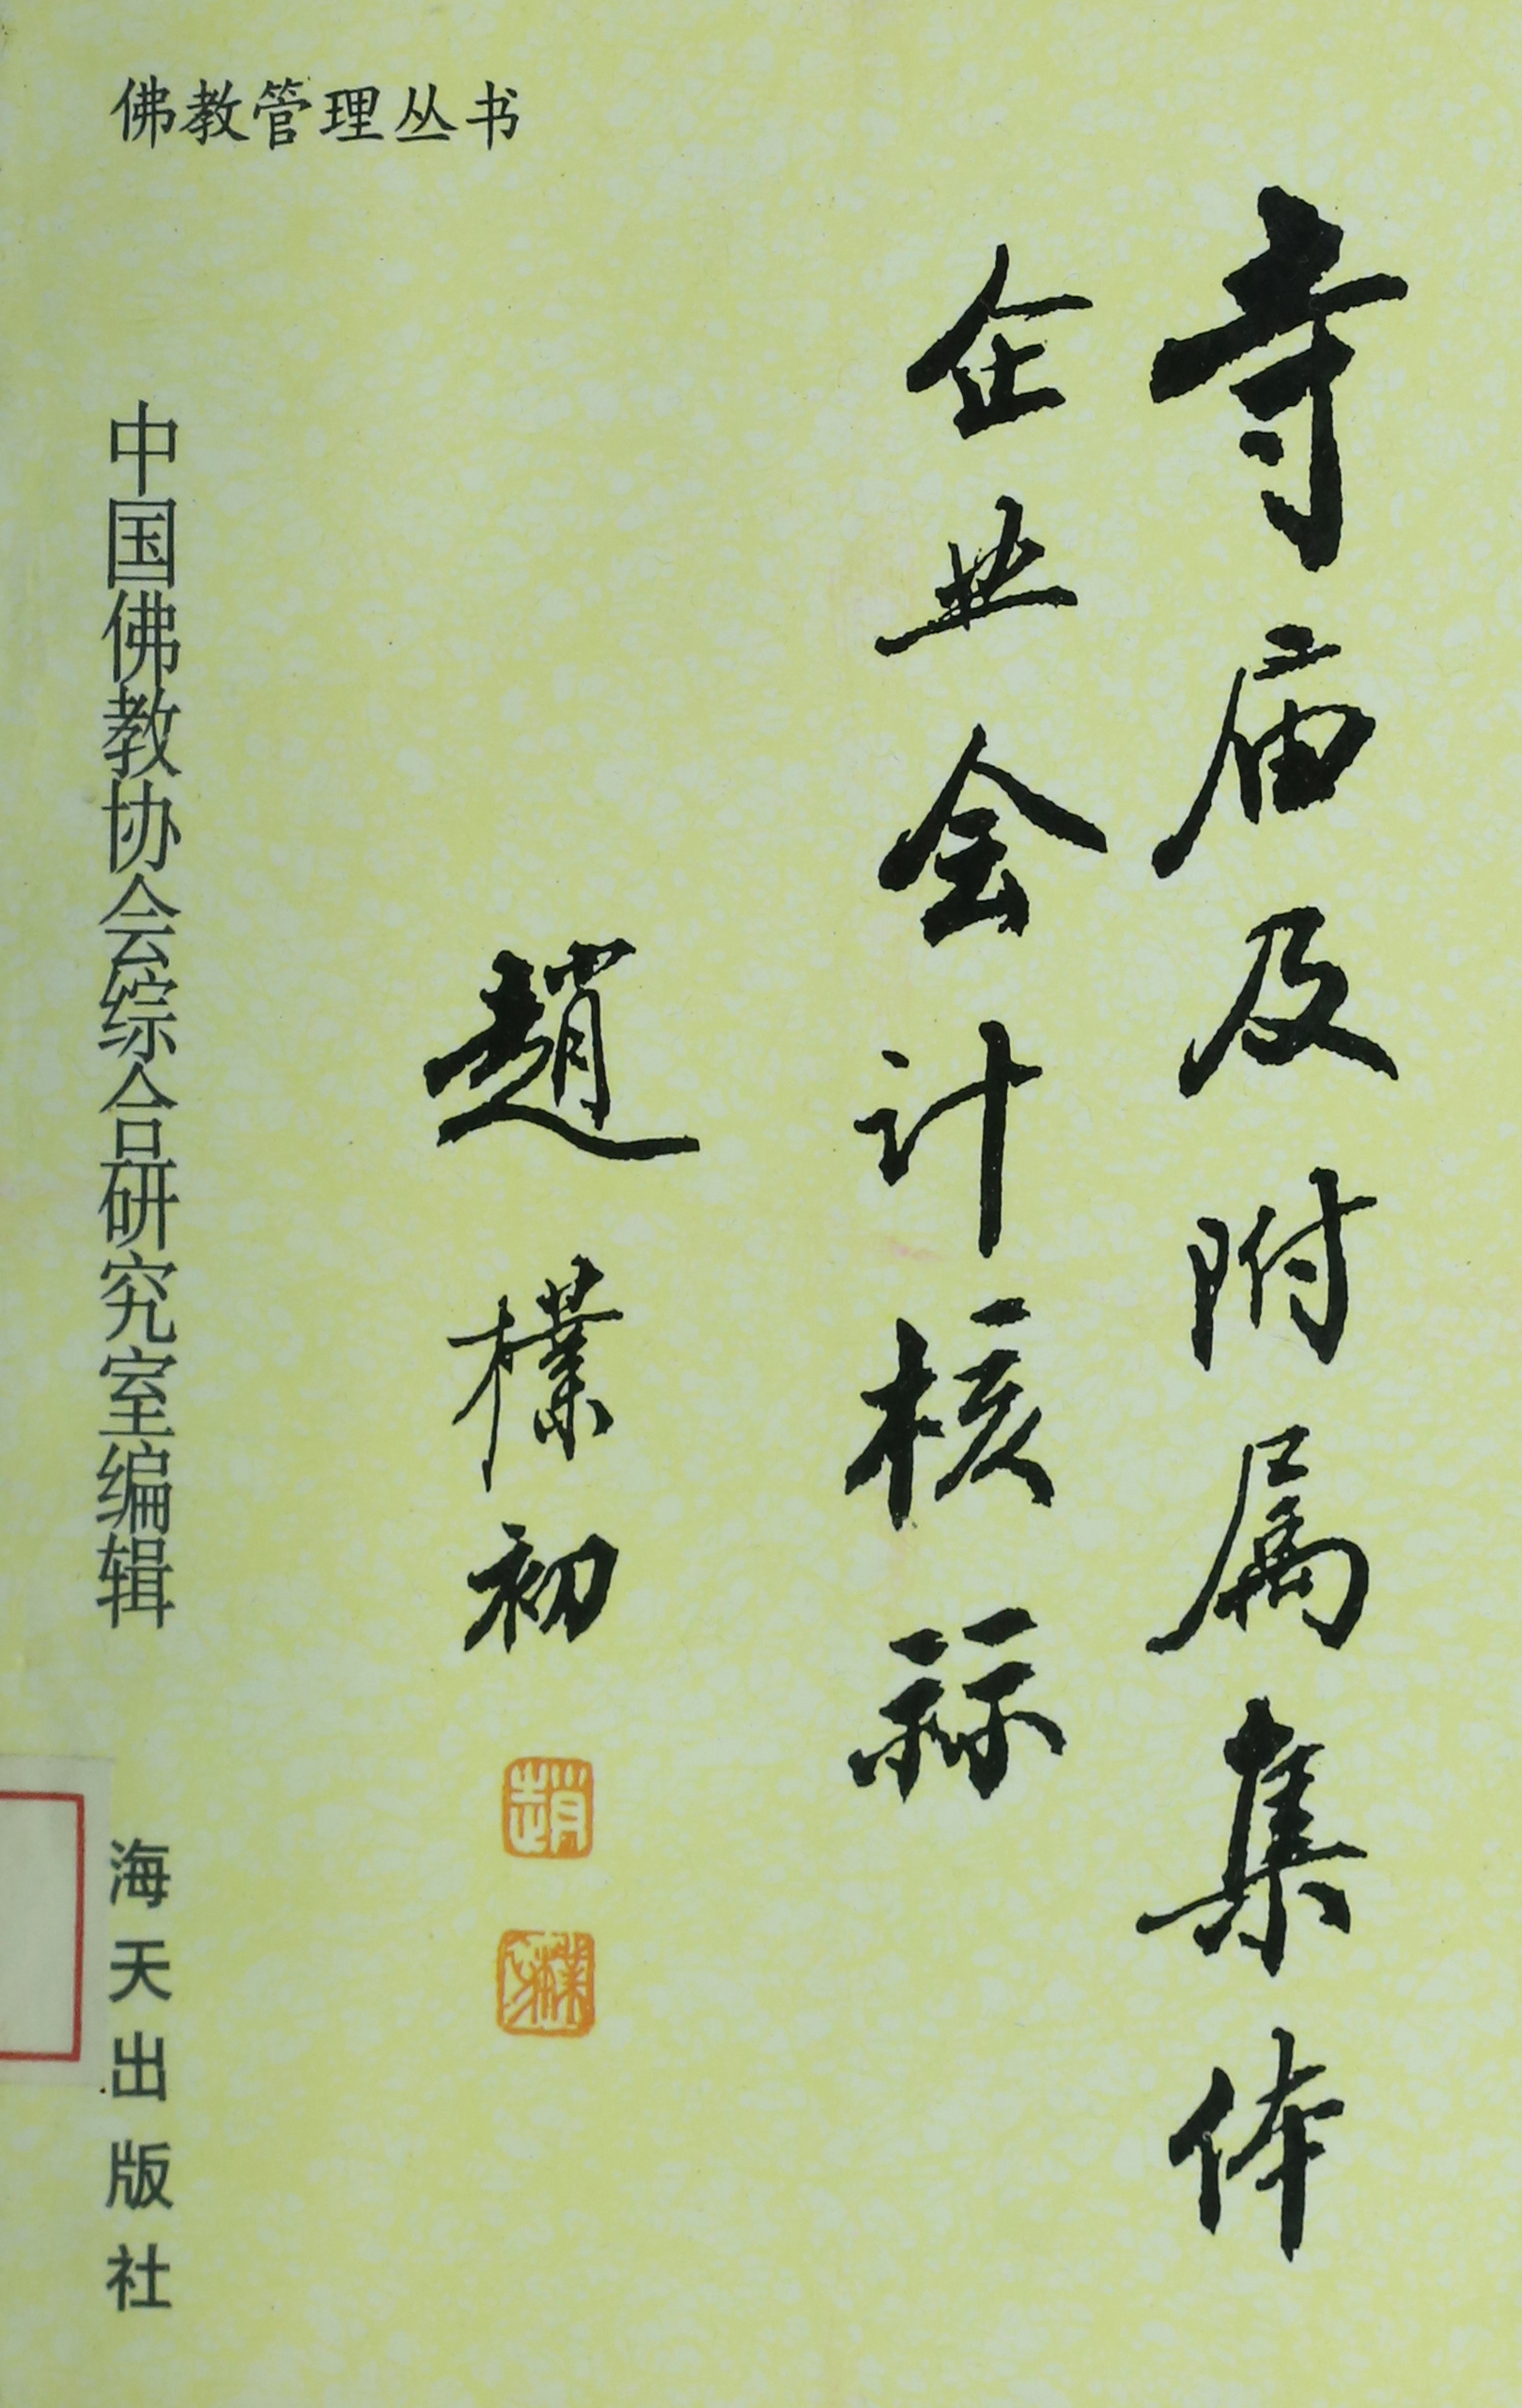 佛教管理丛书
寺庙及附属集体
企业会计核祘
趙樸初
趙
樸初
中国佛教协会综合研究室编辑
海天出版社